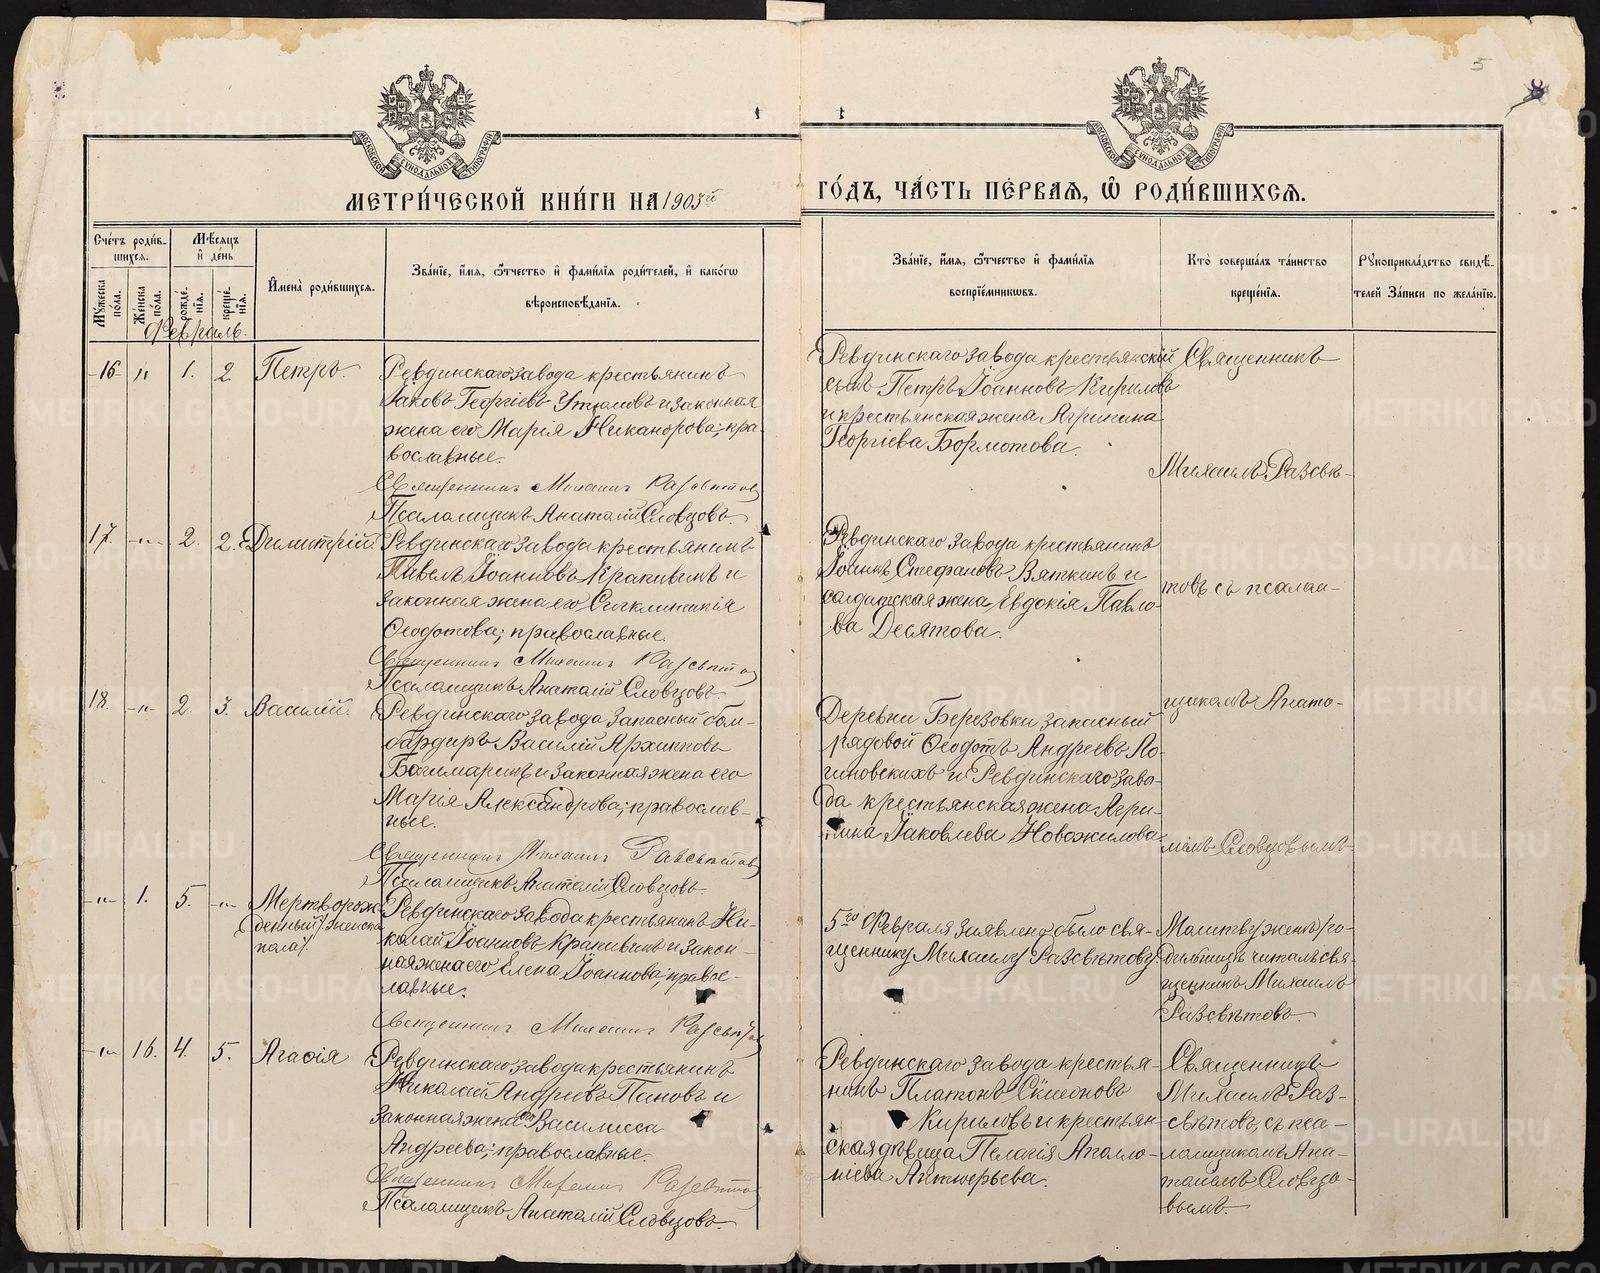 5
МОСКОВСКОЙ СѴНОДАЛЬНОЙ ТИПОГРАФІИ
МОСКОВСКОЙ СѴНОДАЛЬНОЙ ТИПОГРАФІИ
МЕТРИ́ЧЕСКОЙ КНИ́ГИ НА 1903й ГО́ДЪ, ЧА́СТЬ ПЕ́РВАЯ, Ѽ РОДИ́ВШИХСЯ.
Сче́тъ роди́в-
шихся.
Мѣ́сяцъ
и҆ де́нь
Мꙋжеска по́ла.
Же́нска по́ла.
рожде́-нїя.
креще́-нїя.
И҆мена̀ роди́вшихся.
Зва́нїе, и҆́мя, ѻ҆́тчество и҆ фами́лїя роди́телей, и҆ како́гѡ
вѣроисповѣ́данїя.
Зва́нїе, и҆́мя, ѻ҆́тчество и҆ фами́лїя
воспрїе́мникѡвъ.
Кто̀ соверша́лъ та́инство
креще́нїя.
Рꙋкоприкла́дство свидѣ́-
телей за́писи по жела́нїю.
Февраль.
16 " 1. 2 Петръ.
Ревдинскаго завода крестьянинъ
Іаковъ Георгіевъ Утюмовъ и законная
жена его Марія Никандрова; пра-
вославные.
Священникъ Михаилъ Разсвѣтовъ
Псаломщикъ Анатолій Словцовъ.
Ревдинскаго завода крестьянскій
сынъ Петръ Іоанновъ Кириловъ
и крестьянская жена Агрипина
Георгіева Бормотова.
Священникъ
Михаилъ Разсвѣ-
17. -"- 2. 2. Димитрій.
Ревдинскаго завода крестьянинъ
Павелъ Іоанновъ Крапивинъ и
законная жена его Синклитикія
Ѳеодотова; православные.
Священникъ Михаилъ Разсвѣтовъ
Псаломщикъ Анатолій Словцовъ.
Ревдинскаго завода крестьянинъ
Іоаннъ Стефановъ Вяткинъ и
солдатская жена Евдокія Павло-
ва Десятова.
товъ съ псалом-
18. -"- 2. 3. Василій.
Ревдинскаго завода запасный бом-
бардиръ Василій Архиповъ
Багимаринъ и законная жена его
Марія Александрова; православ-
ные.
Священникъ Михаилъ Разсвѣтовъ
Псаломщикъ Анатолій Словцовъ.
Деревни Березовки запасный
рядовой Ѳеодотъ Андреевъ Ло-
гиновскихъ и Ревдинскаго заво-
да крестьянская жена Агри-
пина Іаковлева Новожилова.
щикомъ Анато-
ліемъ Словцовымъ.
-"- 1. 5. -"- Мертворож-
денный /женска
пола/.
Ревдинскаго завода крестьянинъ Ни-
колай Іоанновъ Крапивинъ и закон-
ная жена его Елена Іоаннова; правос-
лавные.
Священникъ Михаилъ Разсвѣтовъ
5го Февраля заявлено было свя-
щеннику Михаилу Разсвѣтову.
Молитву женѣ ро-
дильницѣ читалъ свя-
щенникъ Михаилъ
Разсвѣтовъ.
-"- 16. 4. 5. Агаѳія
Ревдинскаго завода крестьянинъ
Николай Андреевъ Пановъ и
законная жена его Василисса
Андреева; православные.
Священникъ Михаилъ Разсвѣтовъ
Псаломщикъ Анатолій Словцовъ.
Ревдинскаго завода крестья-
нинъ Платонъ Сѵмеоновъ
Кириловъ и крестьян-
ская дѣвица Пелагія Аполло-
ніева Антюрьева.
Священникъ
Михаилъ Раз-
свѣтовъ, съ пса-
ломщикомъ Ана-
толіемъ Словцо-
вымъ.
METRIKI.GASO-URAL.RU